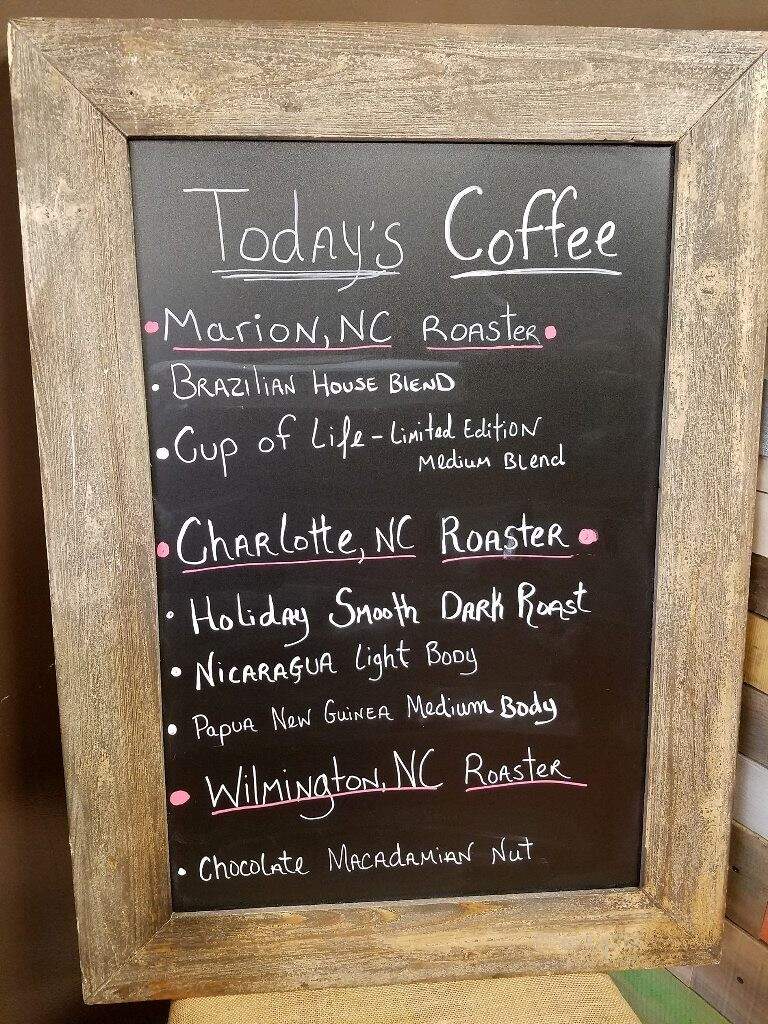 Today's Coffee
Marion, NC Roaster
• Brazilian House Blend
• Cup of Life - Limited Edition
Medium Blend
Charlotte, NC Roaster
• Holiday Smooth Dark Roast
• Nicaragua Light Body
• Papua New Guinea Medium Body
Wilmington, NC Roaster
• Chocolate Macadamian Nut